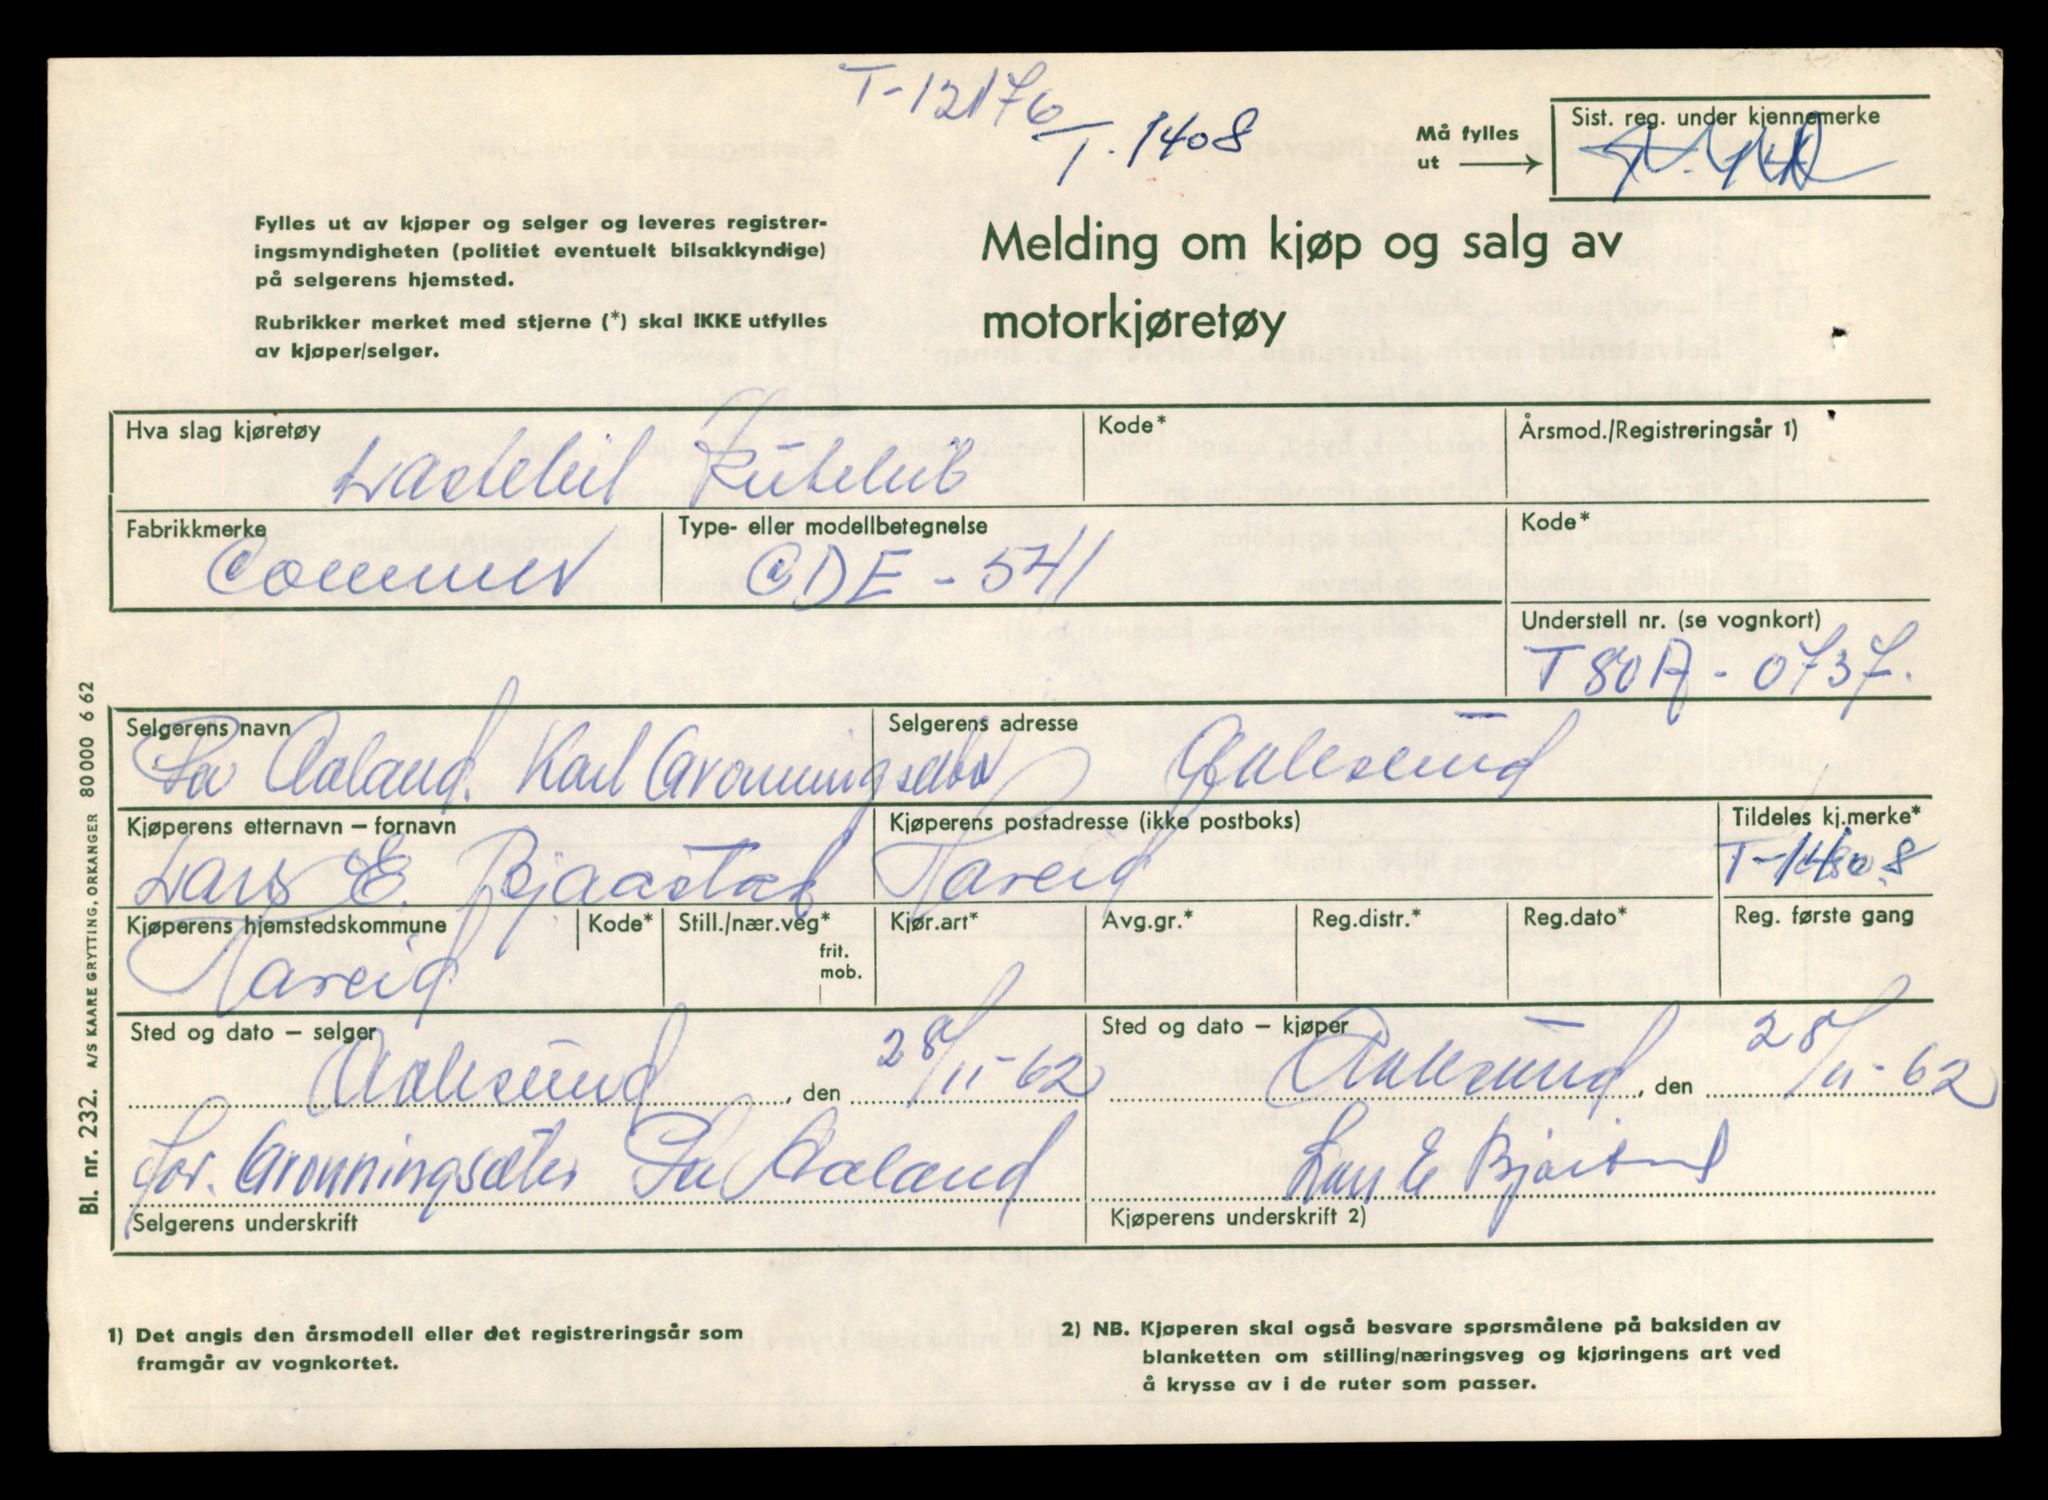 T-12176
T. 1408
Må fylles
ut
Sist. reg. under kjennemerke
Fylles ut av kjøper og selger og leveres registrer-
ingsmyndigheten (politiet eventuelt bilsakkyndige)
på selgerens hjemsted.
Rubrikker merket med stjerne (*) skal IKKE utfylles
av kjøper/selger.
Melding om kjøp og salg av
motorkjøretøy
Hva slag kjøretøy
Kode*
Årsmod./Registreringsår 1)
Lastebil
Fabrikkmerke
Type- eller modellbetegnelse
Kode*
Commer
CDE - 541
Understell nr. (se vognkort)
T80A - 0737.
Selgerens navn
Selgerens adresse
Aaland. Karl Grønningsæter
Aalesund
Kjøperens etternavn – fornavn
Kjøperens postadresse (ikke postboks)
Tildeles kj.merke*
Lars E. Bjaastad
Hareid
T-1408
Kjøperens hjemstedskommune
Kode*
Still./nær.veg*
frit.
mob.
Kjør.art*
Avg.gr.*
Reg.distr.*
Reg.dato*
Reg. første gang
Hareid
Sted og dato – selger
Sted og dato – kjøper
Aalesund, den 28/11-62
Aalesund, den 28/11-62
for. Grønningsæter Aaland
Lars E Bjåstad
Selgerens underskrift
Kjøperens underskrift 2)
1) Det angis den årsmodell eller det registreringsår som
framgår av vognkortet.
2) NB. Kjøperen skal også besvare spørsmålene på baksiden av
blanketten om stilling/næringsveg og kjøringens art ved
å krysse av i de ruter som passer.
Bl. nr. 232. A/S KAARE GRYTTING, ORKANGER 80000 6 62